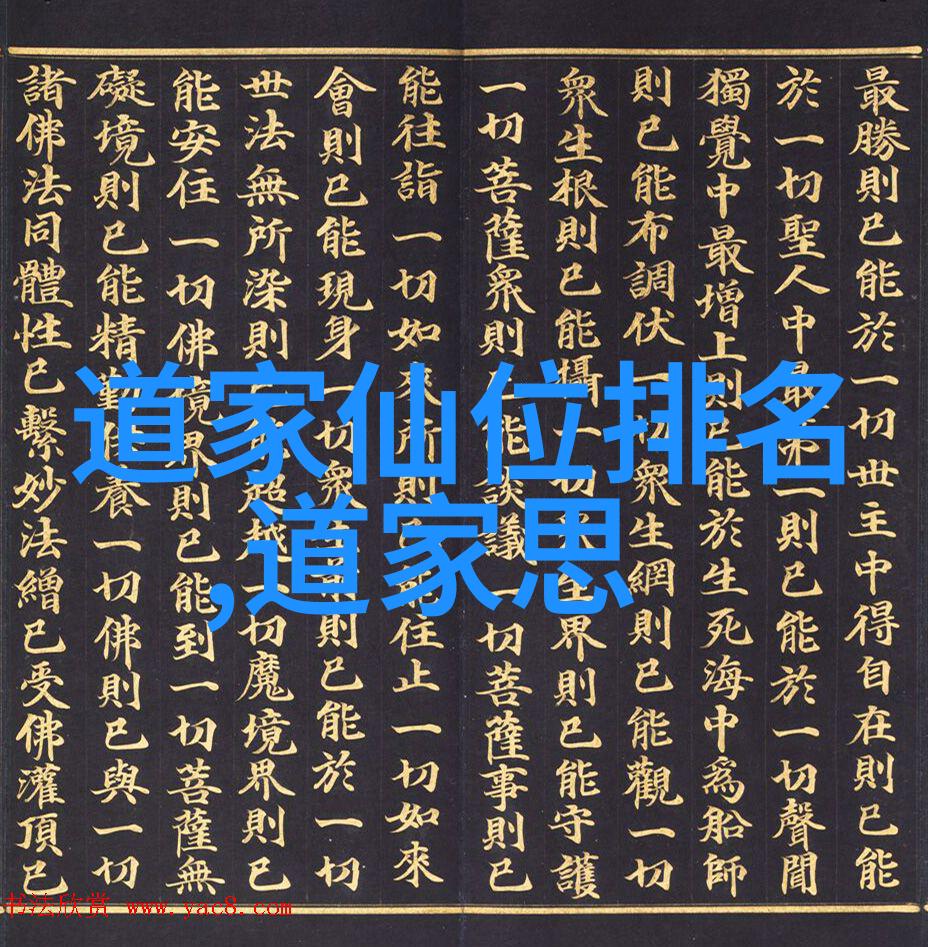 道家仙位排名
,道家思
最勝則已能於一切世主中得自在則已能
於一切聖人中最第一則已能於一切聲聞
獨覺中最增上則已能於生死海中爲船師
則已能布調伏一切衆生網則已能觀一切
衆生根則已能攝一切衆生界則已能守護
一切菩薩衆則已能談議一切菩薩事則已
能往詣一切如來所則已能住止一切如來
會則已能現身一切衆生前則已能於一切
世法無所染則已能超越一切魔境界則已
能安住一切佛境界則已能到一切菩薩無
礙境則已能精勤供養一切佛則已與一切
諸佛法同體性已繫妙法繒已受佛灌頂已
书法欣赏 www.yac8.com